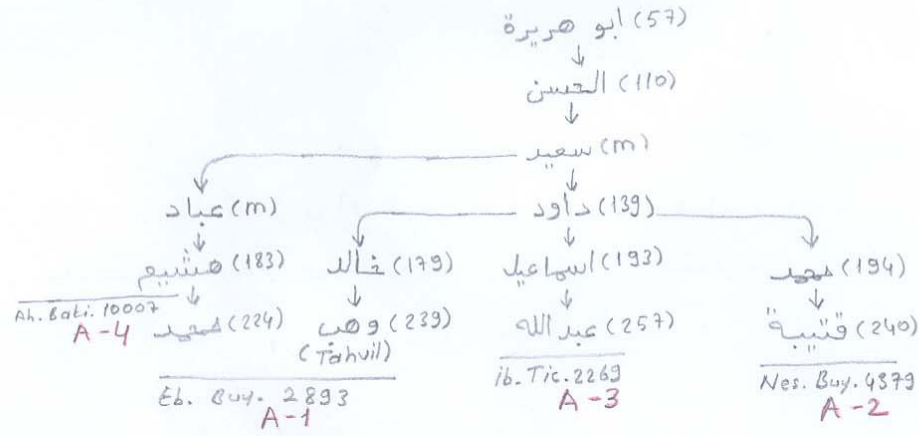 ابو هريرة (57)
الحسن (110)
سعيد (m)
عباد (m) داود (139)
هشيم (183) خالد (179) اسماعيل (193) محمد (194)
Ah. Baki. 10007 محمد (224) وهب (239) عبد الله (257) قتيبة (240)
A-4 (Tahvil)
Eb. Buy. 2893 ib. Tic. 2269 Nes. Buy. 4379
A-1 A-3 A-2